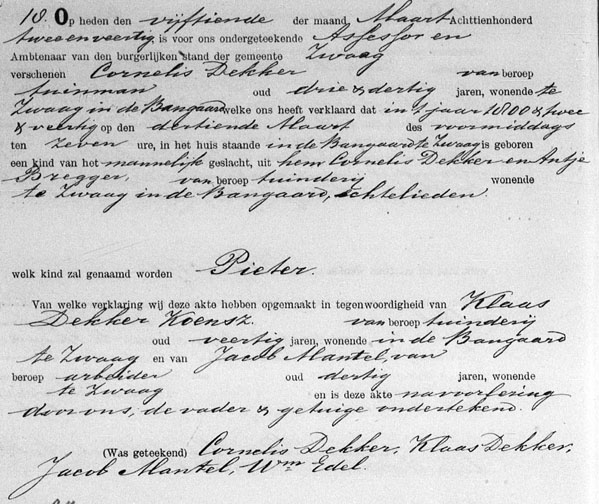 18. Op heden den vijftiende der maand, Maart Achttienhonderd
twee en veertig is voor ons ondergeteekende Assessor en
Ambtenaar van den burgerlijken stand der gemeente Zwaag
verschenen Cornelis Dekker van beroep
tuinman oud drie & dertig jaren, wonende te
Zwaag in de Bangaard welke ons heeft verklaard dat in 't jaar 1800 & twee
& veertig op den dertiende Maart des voormiddags
ten zeven ure, in het huis staande in de Bangaard te Zwaag is geboren
een kind van het mannelijk geslacht, uit hem Cornelis Dekker en Antje
Bregger, van beroep tuinderij wonende
te Zwaag in de Bangaard, echtelieden.
welk kind zal genaamd worden Pieter.
Van welke verklaring wij deze akte hebben opgemaakt in tegenwoordigheid van Klaas
Dekker Koensz. van beroep tuinderij
oud veertig jaren, wonende in de Bangaard
te Zwaag en van Jacob Mantel, van
beroep arbeider oud dertig jaren, wonende
te Zwaag en is deze akte na voorlezing
door ons, de vader & getuige onderteekend.
(Was geteekend) Cornelis Dekker, Klaas Dekker,
Jacob Mantel, Wm Edel.